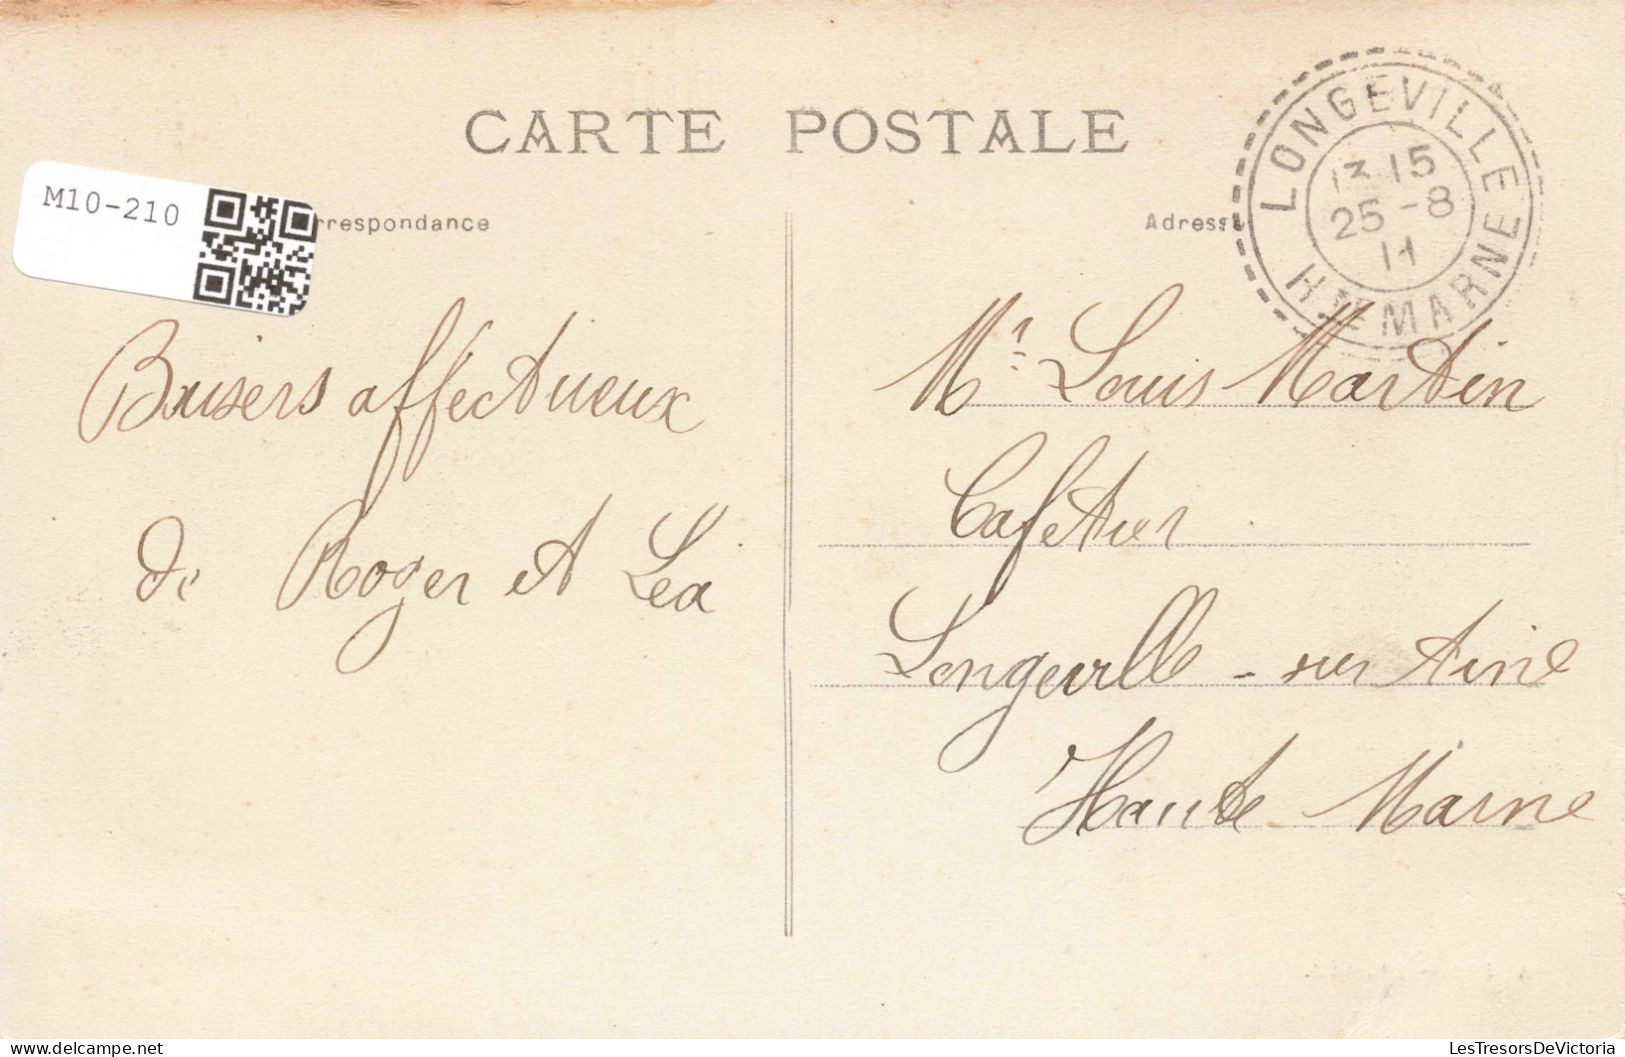 CARTE POSTALE
M10-210
rrespondance
Adress
LONGEVILLE
13 15
25 -8
11
Hte MARNE
Baisers affectueux
de Roger et Léa
Mr Louis Martin
Cafetier
Longeville - sur
Haute Marne
delcampe.net
LesTresorsDeVictoria